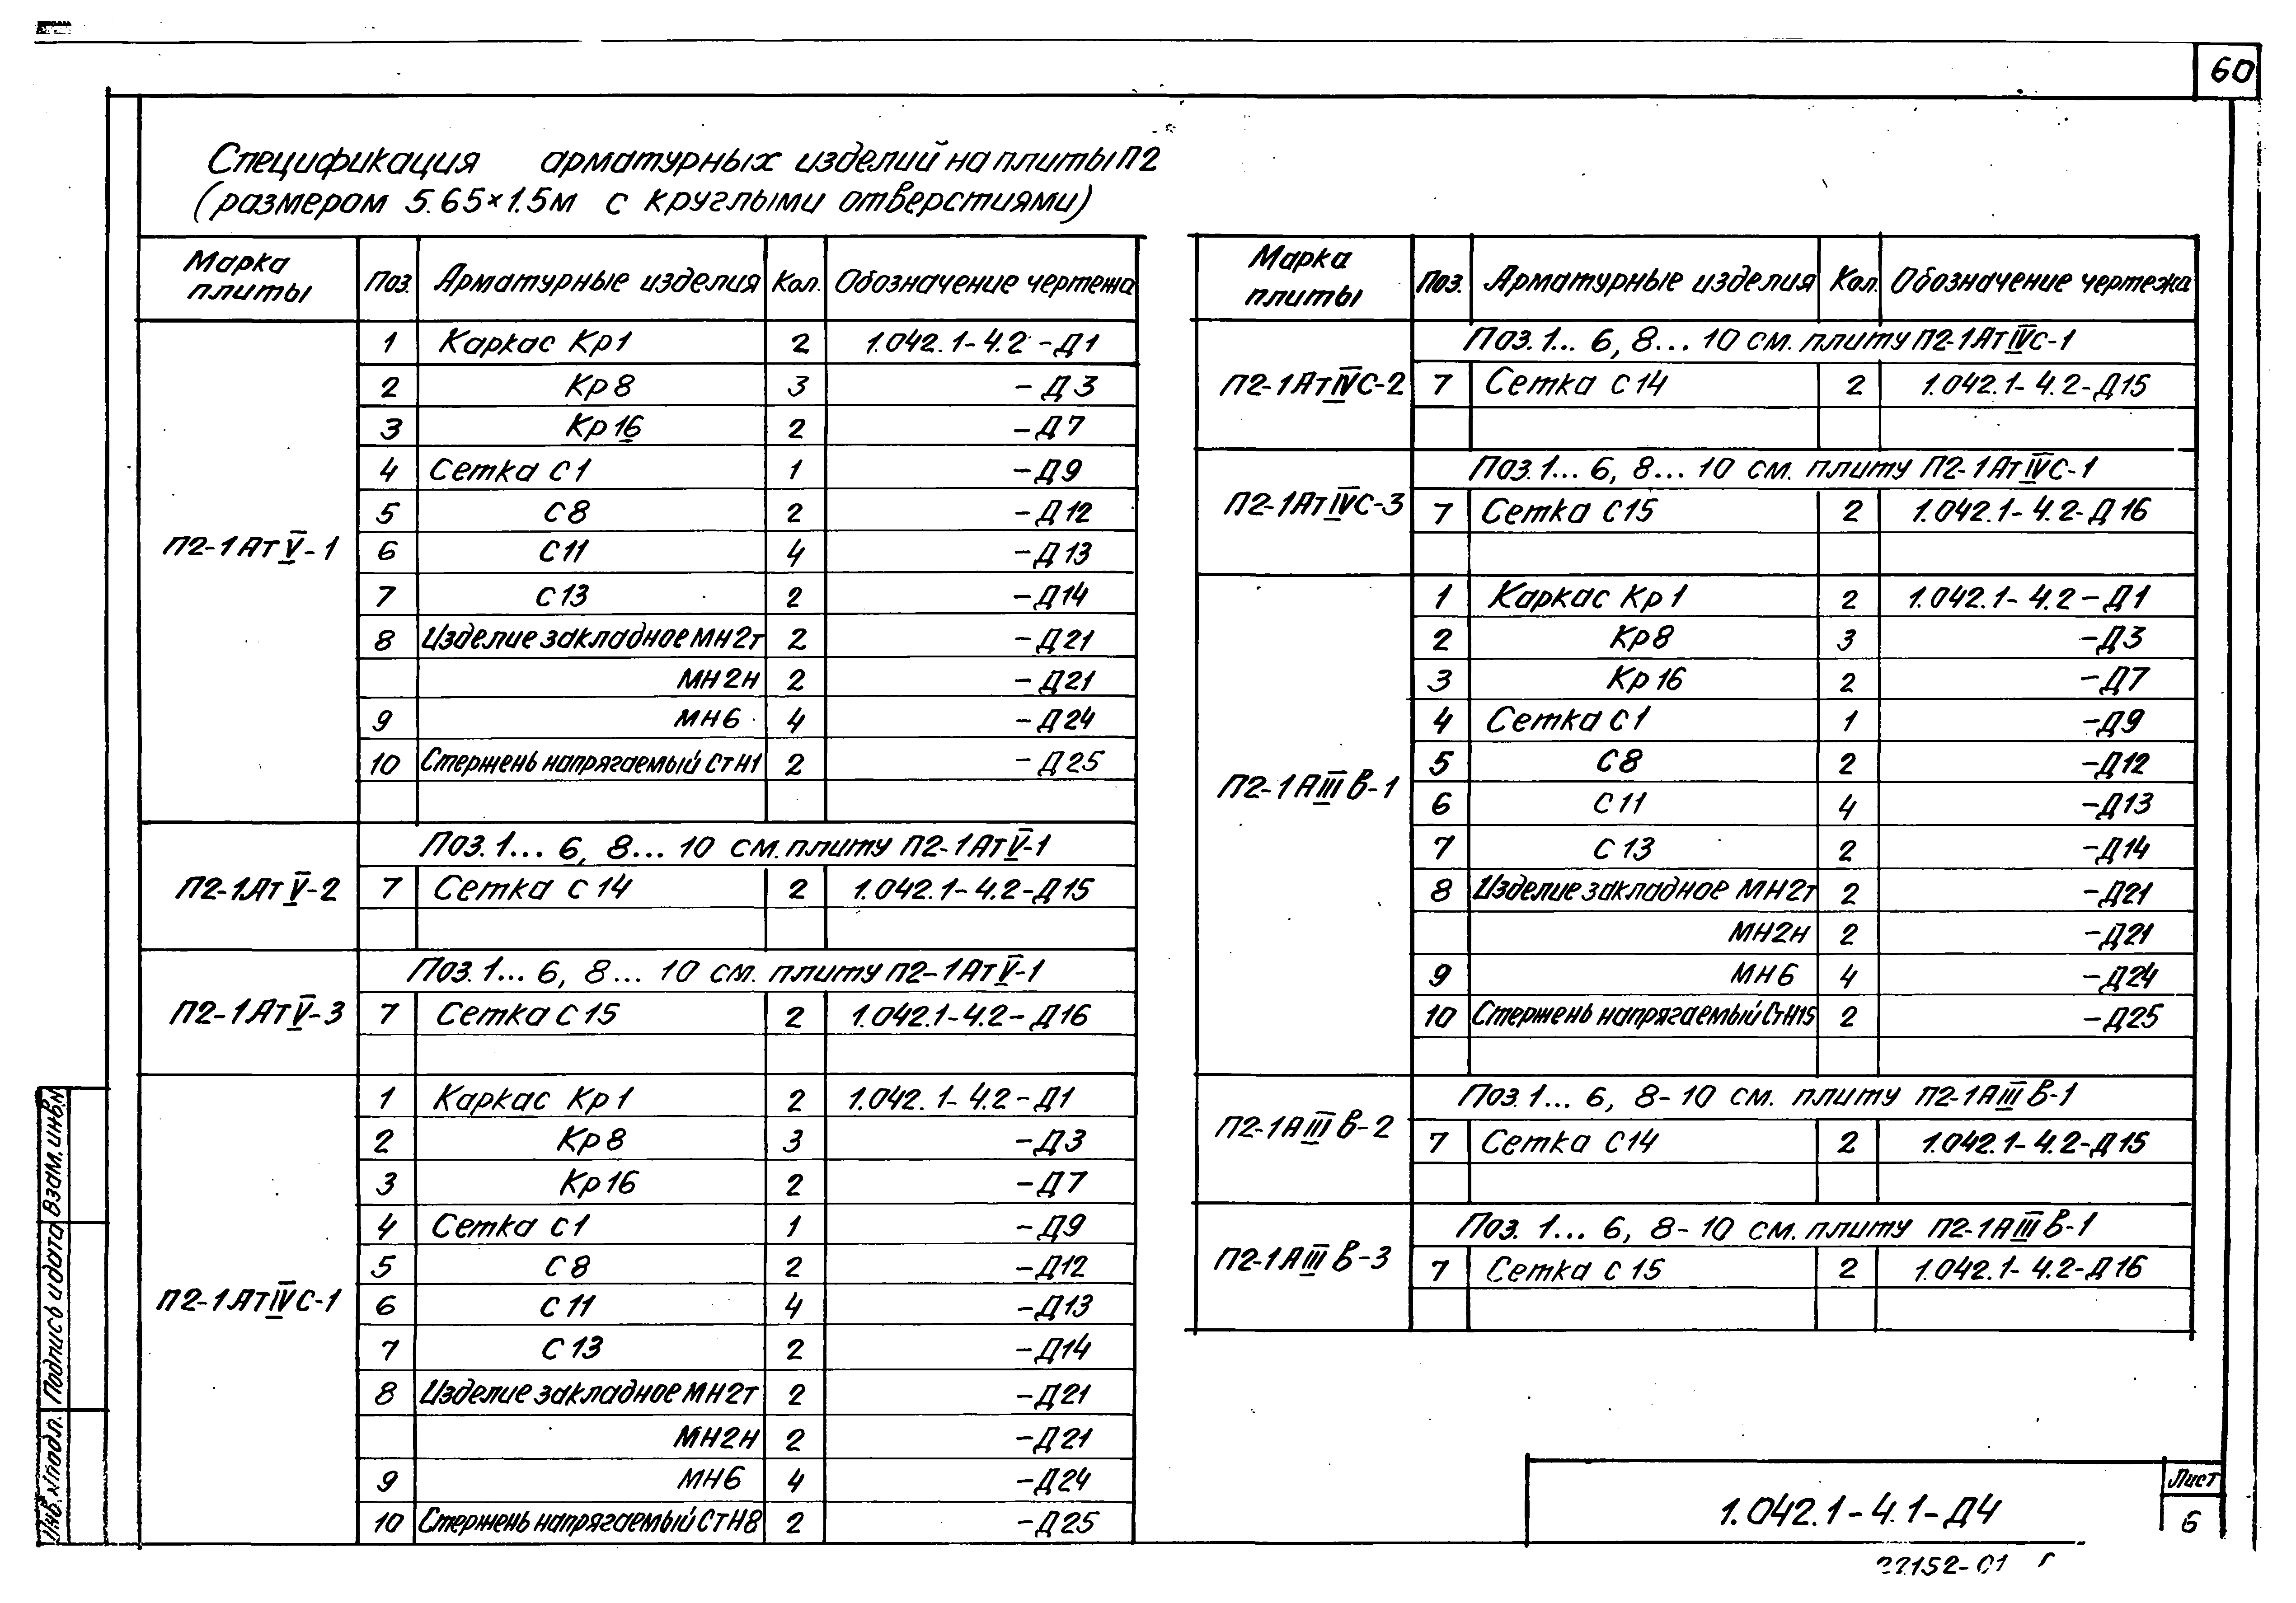 60
Спецификация арматурных изделий на плиты П2
(размером 5.65×1.5м с круглыми отверстиями)
Марка плиты Поз. Арматурные изделия Кол. Обозначение чертежа
П2-1АтV-1
1 Каркас Кр1 2 1.042.1-4.2-Д1
2 Кр8 3 -Д3
3 Кр16 2 -Д7
4 Сетка С1 1 -Д9
5 С8 2 -Д12
6 С11 4 -Д13
7 С13 2 -Д14
8 Изделие закладное МН2т 2 -Д21
МН2н 2 -Д21
9 МН6 4 -Д24
10 Стержень напрягаемый СтН1 2 -Д25
П2-1АтV-2
Поз. 1... 6, 8... 10 см. плиту П2-1АтV-1
7 Сетка С14 2 1.042.1-4.2-Д15
П2-1АтV-3
Поз. 1... 6, 8... 10 см. плиту П2-1АтV-1
7 Сетка С15 2 1.042.1-4.2-Д16
П2-1АтIVС-1
1 Каркас Кр1 2 1.042.1-4.2-Д1
2 Кр8 3 -Д3
3 Кр16 2 -Д7
4 Сетка С1 1 -Д9
5 С8 2 -Д12
6 С11 4 -Д13
7 С13 2 -Д14
8 Изделие закладное МН2т 2 -Д21
МН2н 2 -Д21
9 МН6 4 -Д24
10 Стержень напрягаемый СтН8 2 -Д25
Марка плиты Поз. Арматурные изделия Кол. Обозначение чертежа
П2-1АтIVС-2
Поз. 1... 6, 8... 10 см. плиту П2-1АтIVС-1
7 Сетка С14 2 1.042.1-4.2-Д15
П2-1АтIVС-3
Поз. 1... 6, 8... 10 см. плиту П2-1АтIVС-1
7 Сетка С15 2 1.042.1-4.2-Д16
П2-1АIIIв-1
1 Каркас Кр1 2 1.042.1-4.2-Д1
2 Кр8 3 -Д3
3 Кр16 2 -Д7
4 Сетка С1 1 -Д9
5 С8 2 -Д12
6 С11 4 -Д13
7 С13 2 -Д14
8 Изделие закладное МН2т 2 -Д21
МН2н 2 -Д21
9 МН6 4 -Д24
10 Стержень напрягаемый СтН15 2 -Д25
П2-1АIIIв-2
Поз. 1... 6, 8-10 см. плиту П2-1АIIIв-1
7 Сетка С14 2 1.042.1-4.2-Д15
П2-1АIIIв-3
Поз. 1... 6, 8-10 см. плиту П2-1АIIIв-1
7 Сетка С15 2 1.042.1-4.2-Д16
Инв. №подл. Подпись и дата Взам. инв.№
1.042.1-4.1-Д4
Лист
6
22152-01